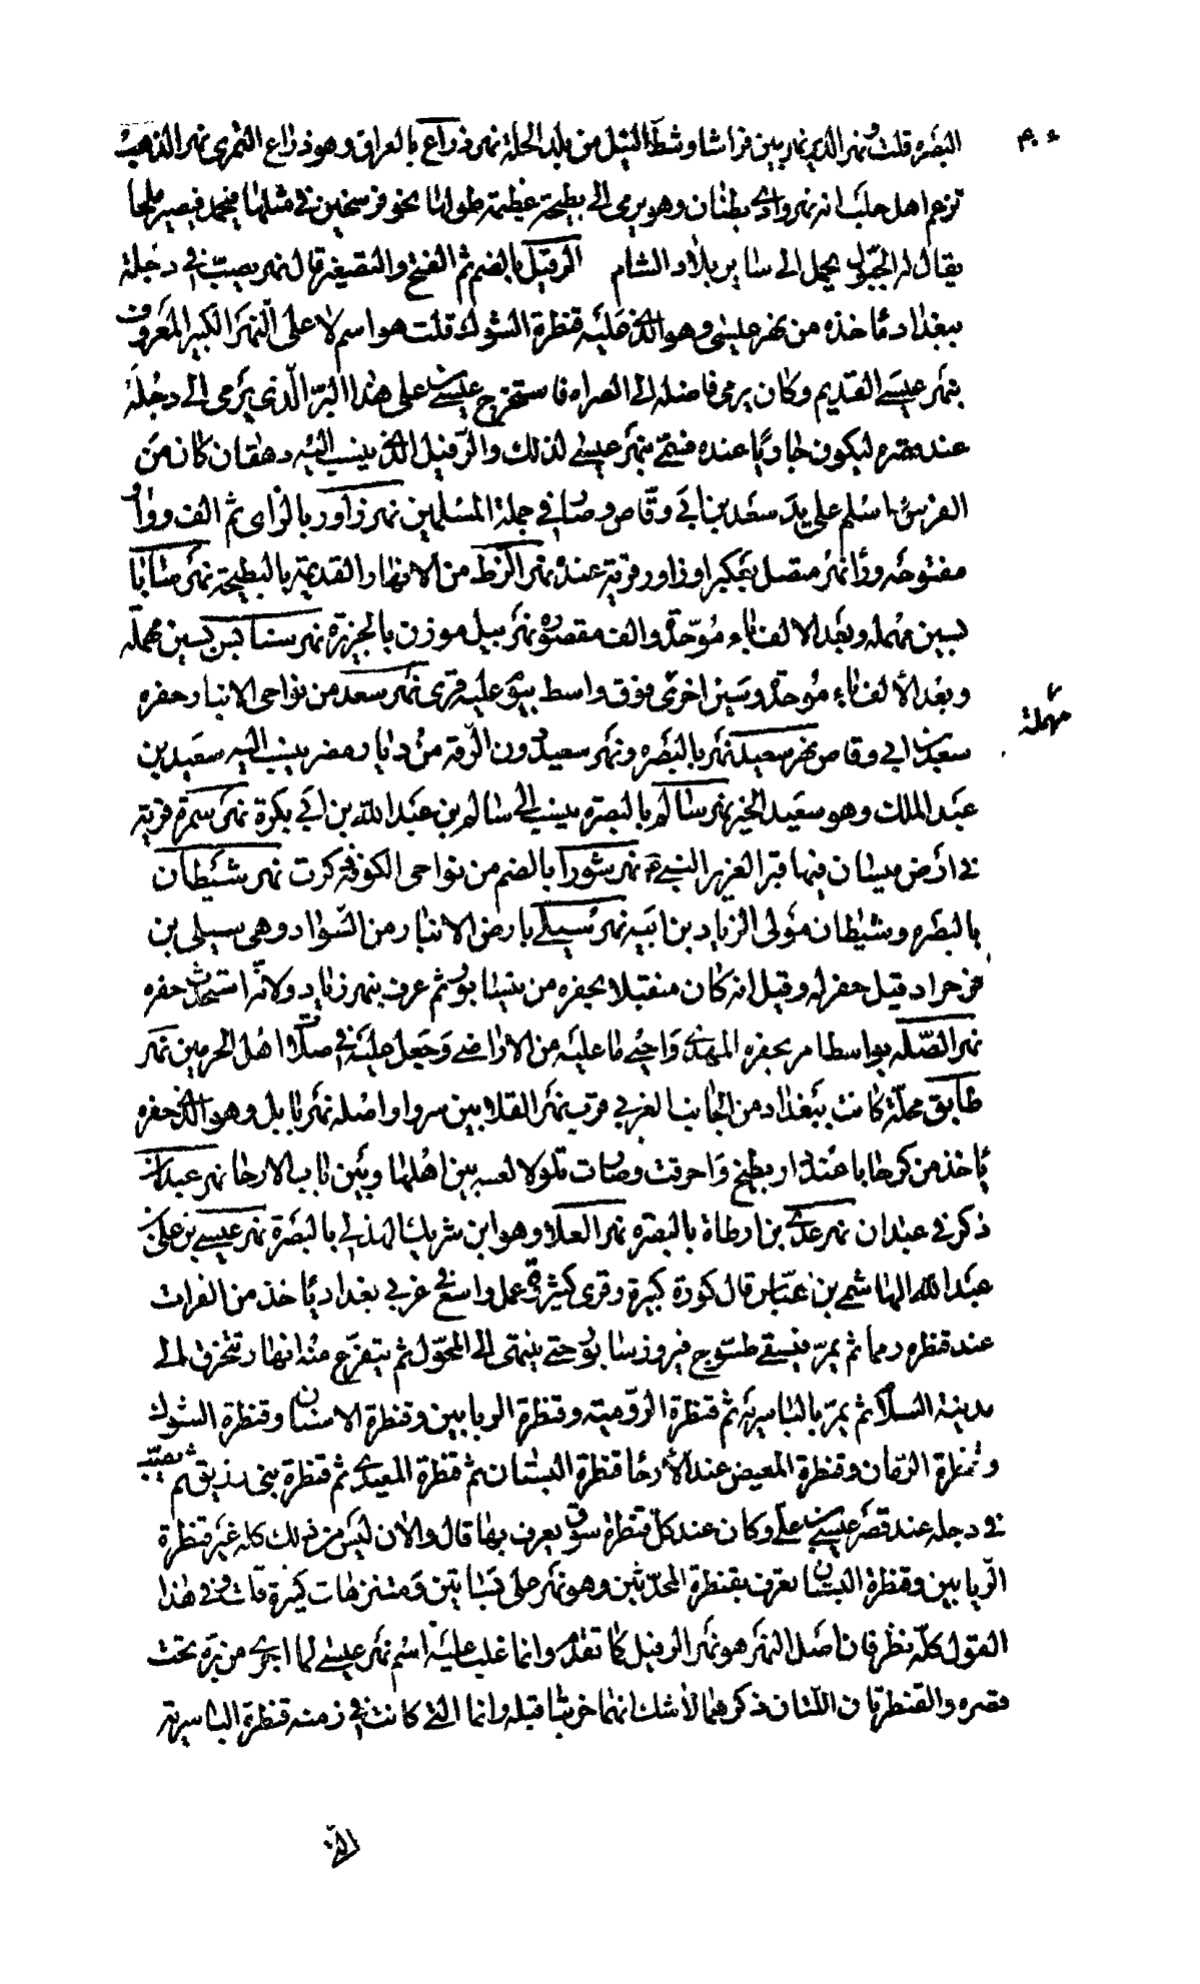 البصره قلت ونهر الدير نهر بين فراشا وشط النيل من بلد الحلة نهر ذراع بالعراق وهو ذراع النمرى نهر الذهب
تزعم اهل حلب انه نهر وادى بطنان وهو يرمى الى بطيحة عظيمة طولها نحو فرسخين فى مثلها فيجمد فيصير ملحا
يقال له الجبولى يحمل الى ساير بلاد الشام الرفيل بالضم ثم الفتح والتصغير قال نهر يصب فى دجلة
ببغداد مأخذه من نهر عيسى وهو الذى عليه قنطرة الشوك قلت هو اسم لاعلى النهر الكبير المعروف
بنهر عيسى القديم وكان يرمى فاضله الى الصراه فاستخرج عيسى على هذا البر الذى يرمى الى دجلة
عند قصره ليكون جاريا عنده فسمى بنهر عيسى لذلك والرفيل الذى ينسب اليه دهقان كان من
الفرس اسلم على يد سعد بن ابى وقاص وصار فى جملة المسلمين نهر زاور بالزاى ثم الف وواو
مفتوحه وراء نهر متصل بعكبرا وزاور قرية عنده نهر الزط من الانهار القديمة بالبطيحة نهر سابا
بسين مهمله وبعد الالف باء موحدة والف مقصوره نهر بيل موزن بالجزيرة نهر سنابس بسين مهملة
وبعد الالف باء موحدة وسين اخرى فوق واسط بيو عليه قرى نهر سعد من نواحى الانبار حفره
مهملة
سعد بن ابى وقاص نهر سعيد نهر بالبصره ونهر سعيد دون الرقة من ديار مضر ينسب اليه سعيد بن
عبد الملك وهو سعيد الخير نهر سالم بالبصره ينسب الى سالم بن عبد الله بن ابى بكرة نهر سمرة قرية
فى ارض ميسان فيها قبر العزير النبى نهر شورا بالضم من نواحى الكوفة كرت نهر شيطان
بالبصره وشيطان مولى الزياد بن ابيه نهر سيلى بارض الانبار من السواد وهى سيلى بن
فرخراد قيل حفر له وقيل انه كان متقبلا بحفره من نيسابور ثم عرف بنهر زياد ولانه استحدث حفره
نهر الصله بواسط امر بحفره المهدى واحيى ما عليه من الاراضى وجعل غلته فى صلات اهل الحرمين نهر
طابق محلة كانت ببغداد من الجانب الغربى قرب نهر القلايين سروا واصله نهر بابل وهو الذى حفره
ياخذ من كرخايا عند دار بطيخ واحرقت وصارت تلولا بين اهلها وبين باب الارحا نهر عبدان
ذكر فى عبدان نهر عدى بن ارطاة بالبصره نهر العلا وهو ابن شريك الهذلى بالبصرة نهر عيسى بن على بن
عبد الله الهاشمى بن عباس قال كورة كبيرة وقرى كثيرة فى عمل واسع فى غربى بغداد ياخذ من الفرات
عند قنطره دمما ثم يمر فيسقى طسوج فيروز سابور حتى ينتهى الى المحول ثم يتفرع منه انهار تتخرق الى
مدينة السلام ثم يمر بالياسريه ثم قنطرة الروميه وقنطرة الرياحين وقنطرة الاشنان وقنطرة الشوك
وقنطرة الرمان وقنطرة المعيض عند الارحا قنطرة البستان ثم قنطرة المعبدى ثم قنطرة بنى زريق ثم يصب
فى دجله عند قصر عيسى بن على وكان عند كل قنطرة سوق يعرف بها قال والان ليس من ذلك كله غير قنطرة
الرياحين وقنطرة البستان تعرف بقنطرة المحدثين وهو نهر على بساتين ومتنزهات كثيرة قلت وفى هذا
القول كله نظر فان اصل النهر هو نهر الرفيل كما تقدم وانما غلب عليه اسم نهر عيسى لما اجرى من بره تحت
قصره والقنطرتان اللتان ذكرهما لاشك انهما خربتا قبله وانما التى كانت فى زمنه قنطرة الياسرية